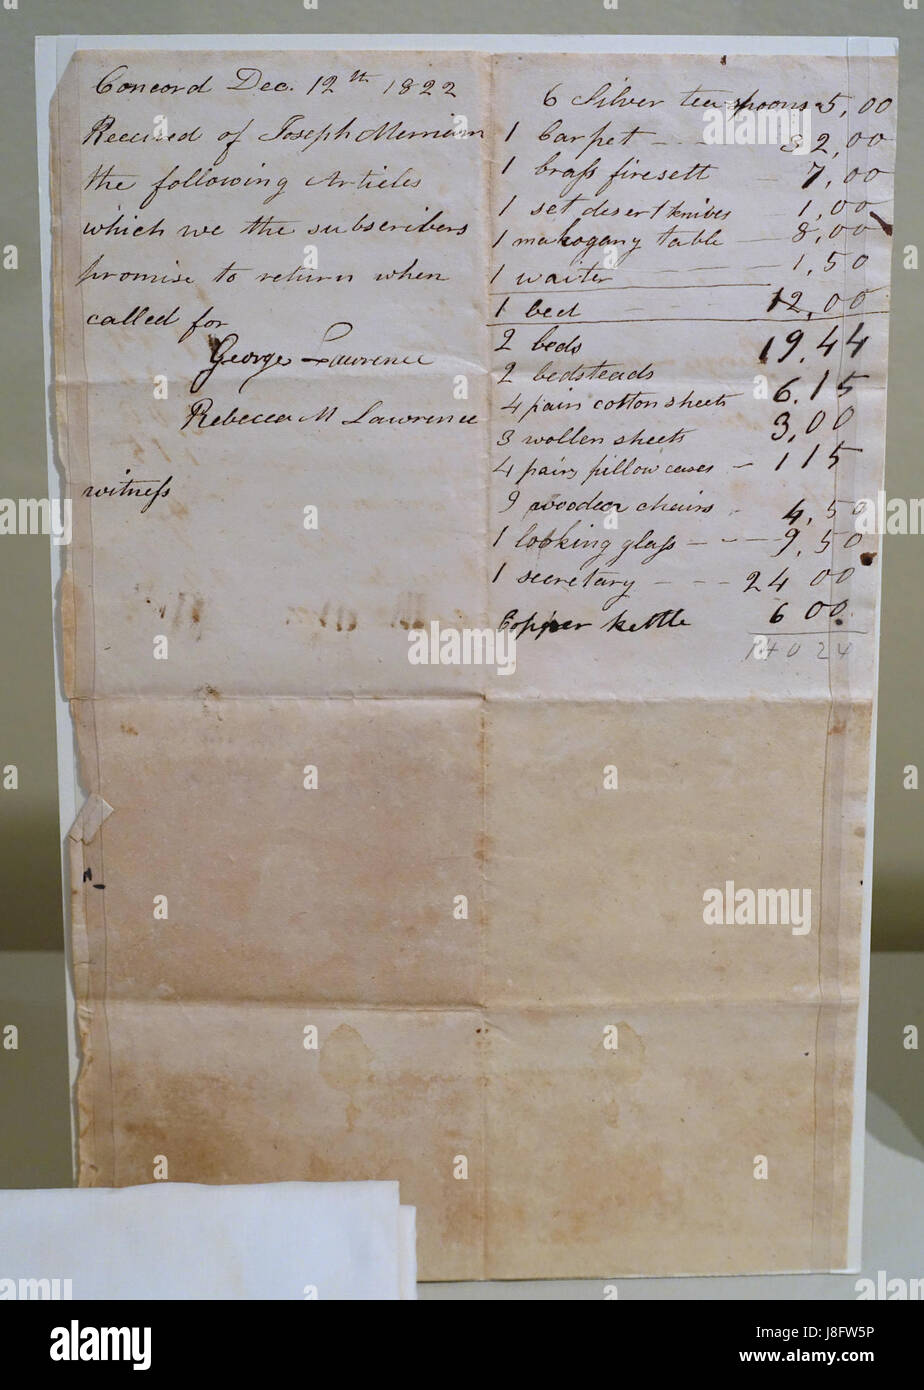 Concord Dec. 12th 1822
Received of Joseph Merriam
the following Articles
which we the subscribers
promise to return when
called for
George Lawrence
Rebecca M Lawrence
witness
6 Silver tea spoons 5,00
1 Carpet 32,00
1 brass firesett 7,00
1 set desert knives 1,00
1 mahogany table 8,00
1 waiter 1,50
1 bed 12,00
2 beds 19,44
2 bedsteads 6.15
4 pairs cotton sheets 3,00
3 wollen sheets
4 pairs pillow cases 1 15
9 wooden chairs 4,50
1 looking glass 9,50
1 secretary 24 00
Copper kettle 6 00
140 24
alamy
alamy stock photo
J8FW5P
www.alamy.com